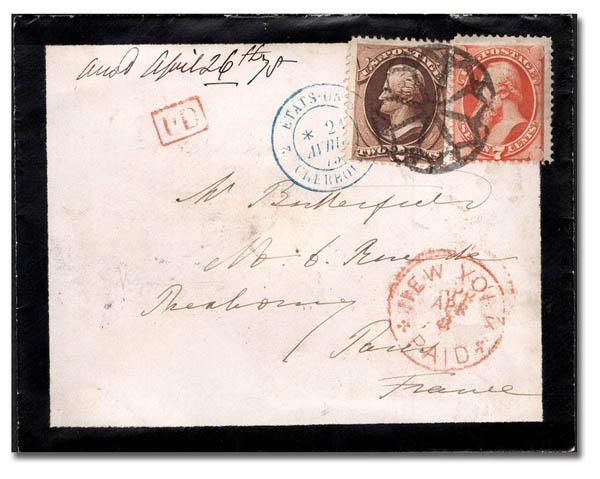 ansd April 26th 75
PD
2 ETATS-UNIS
* 24
AVRIL
CHERBOU
U.S. POSTAGE
TWO CENTS
U.S. POSTAGE
SEVEN 7 CENTS
Mr Butterfield
No 6 Rue de
Paris
France
NEW YORK
APR
PAID